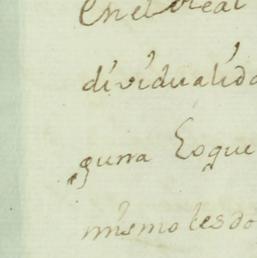 En el real
dividualida
guna Loque
mismo les do